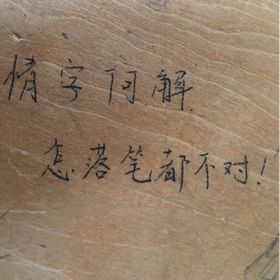 情字何解
怎落笔都不对！